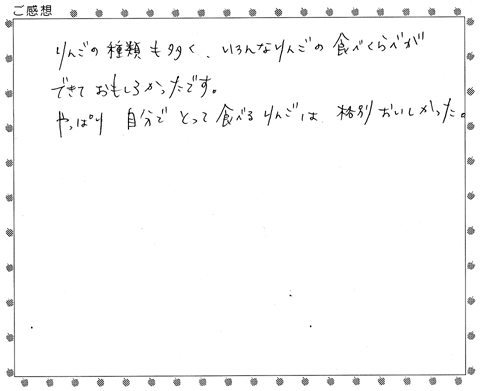 ご感想
りんごの種類も多く、いろんなりんごの食べくらべが
できておもしろかったです。
やっぱり 自分でとって食べるりんごは、格別おいしかった。